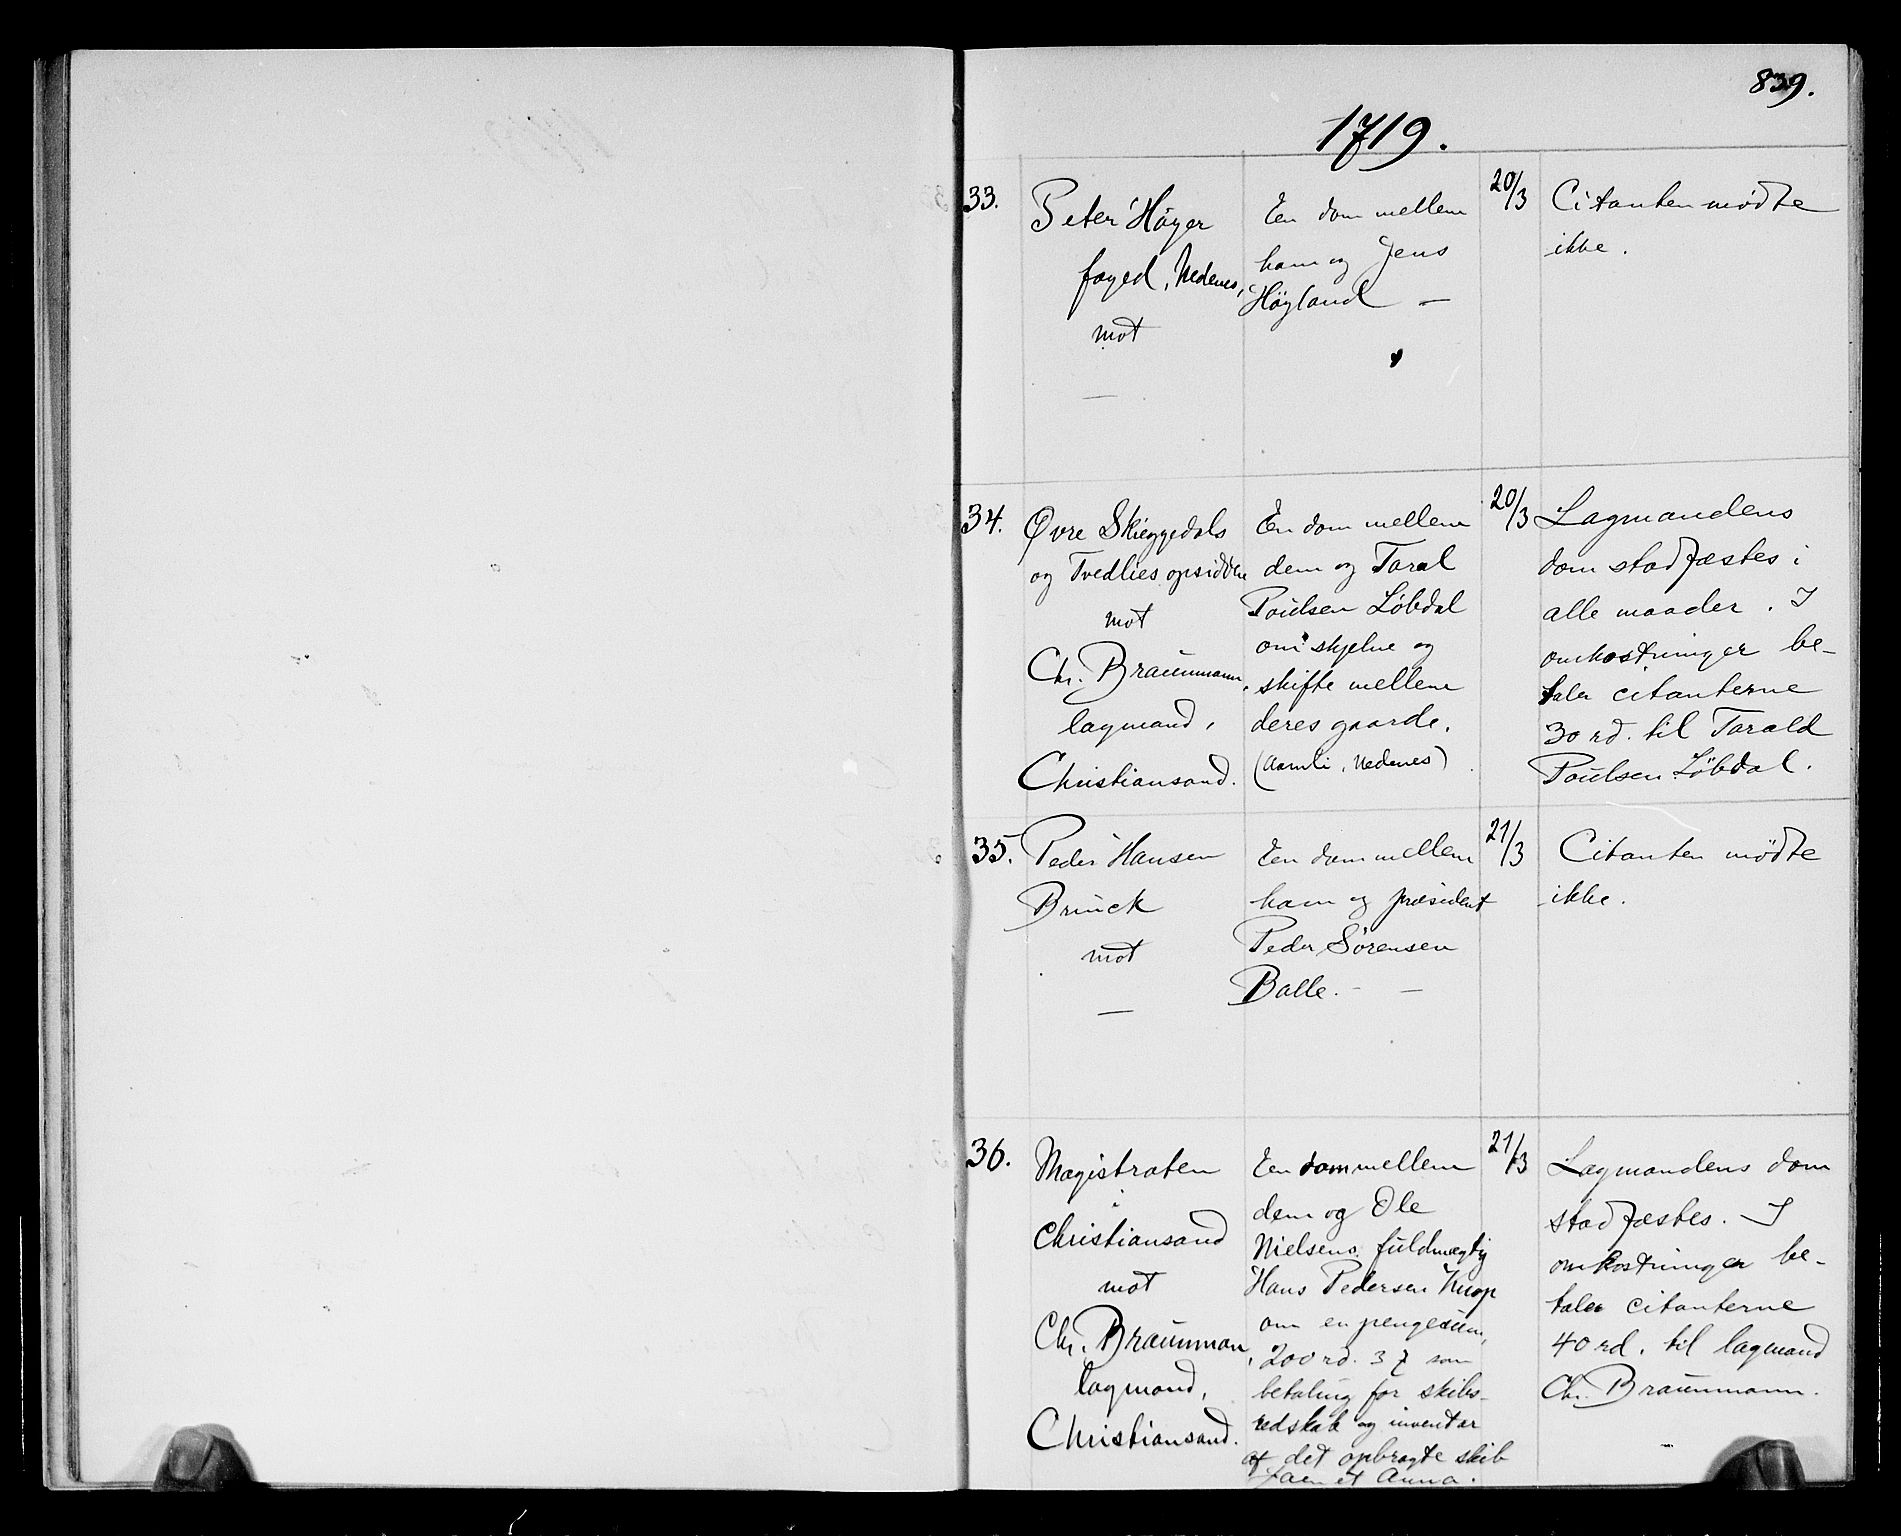 839.
1719.
33.
Peter Høyer
foged, Nedenes,
mot
—
En dom mellem
ham og Jens
Høyland —
20/3
Citanten mødte
ikke.
34.
Øvre Skieggedals
og Tvedlies opsiddere
mot
Chr. Braünmann,
lagmand,
Christiansand.
En dom mellem
dem og Taral
Poülsen Løbdal
om skjelne og
skifte mellem
deres gaarde.
(Aamli, Nedenes)
20/3
Lagmandens
dom stadfæstes i
alle maader. I
omkostninger be-
taler citanterne
30 rd. til Tarald
Poülsen Løbdal.
35.
Peder Hansen
Brüick
mot
—
En dom mellem
ham og præsident
Peder Sørensen
Balle. — —
21/3
Citanten mødte
ikke.
36.
Magistraten
i
Christiansand
mot
Chr. Braünman,
lagmand,
Christiansand.
En dom mellem
dem og Ole
Nielsens füldmægtig
Hans Pedersen
om en pengesüm,
200 rd. 3 som
betaling for skibs-
redskab og inventar
af det opbragte skib
et Anna.
21/3
Lagmandens dom
stadfæstes. I
omkostninger be-
taler citanterne
40 rd. til lagmand
Chr. Braünmann.